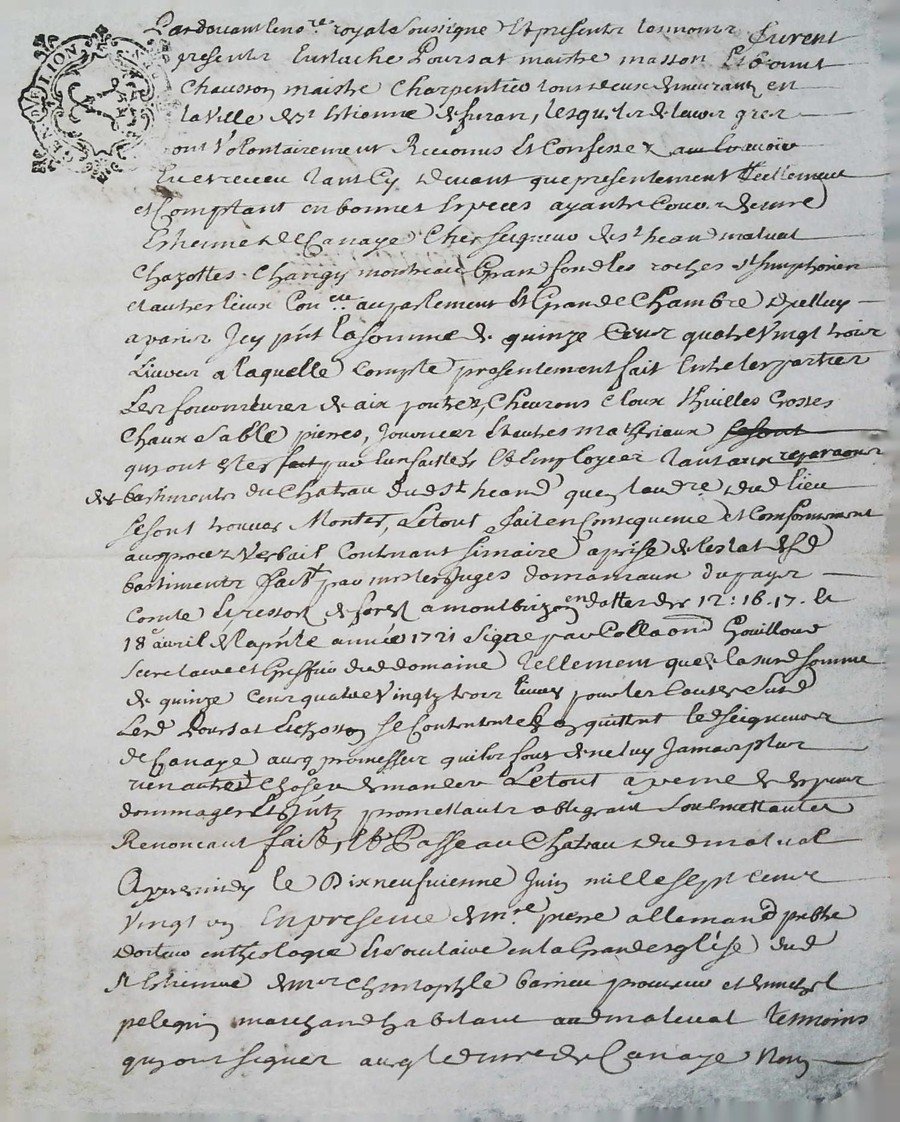 GEN DE LION
Pardevant le no.re royal soussigné Et presents tesmoins furent
presents Eustache Poursat maistre masson Et benoit
Chausson maistre Charpentier tous deux demeurants en
la Ville de st Estienne de furan, lesquels de leur gré
ont Volontairement Reconnus Et Confessé avoir
Eu et receu tant Cy devant que presentement Reellement
et Comptant en bonnes Especes ayants Cours de mre
Estienne de Canaye Cher Seigneur de st heand malval
Chazottes Changy montceau Grand fond les roches st simphorien
et autres lieux Con.er au parlement Et Grande Chambre
a paris Icy pnt la somme de quinze Cent quatre Vingt trois
Livres a laquelle Compte presentement fait Entre les parties
Les fournitures de aix poutres, Chevrons Cloux thuilles Crosses
Chaux Sable pierres, Journées Et autres materiaux se sont
qui ont Estes fait par Eux faittes Et Employées tant aux reparaons
des bastiments du Chateau dud st heand que dud lieu
se sont trouvés Monter, Le tout fait en Consequence et Conformement
au procez Verbail Contenant simaire aprise de l'estat desd
bastiments fait par mrs les Juges domaniaux du pays
Comté Et ressort de forez a montbrizon en datte des 12: 16. 17. &
18e avril de la pnte année 1721 signé par Collaond Gouilloud
Secretaire et Greffier dud domaine tellement que de la susd somme
de quinze cent quatre Vingts trois livres pour les Causes susd
Lesd Poursat Chausson se Contentent Et en quittent led seigneur
de Canaye avec promesses qu'ils font de ne luy Jamais plus
rien autre Chose demander Le tout a peine de despens
dommages Et Intz promettants obligeant Soumettants
Renonceant fait, Et Passé au Chateau dud malval
Apresmidy le Dixneufvienne Juin mille sept cents
Vingt un En presence de mre pierre allemand prebtre
docteur en theologie Et soculaire en la Grande esglise dud
st Estienne de mr Christophle barrieu procureur et de michel
pelegrin marchand habitant aud malval tesmoins
qui ont signés avec led mre de Canaye Non